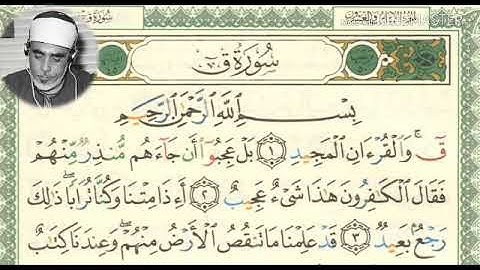 سُورَةُ قٓ
سُورَةُ قٓ
بِسْمِ ٱللَّهِ ٱلرَّحْمَٰنِ ٱلرَّحِيمِ
قٓۚ وَٱلْقُرْءَانِ ٱلْمَجِيدِ ١ بَلْ عَجِبُوٓا۟ أَن جَآءَهُم مُّنذِرٌ مِّنْهُمْ
فَقَالَ ٱلْكَٰفِرُونَ هَٰذَا شَىْءٌ عَجِيبٌ ٢ أَءِذَا مِتْنَا وَكُنَّا تُرَابًاۖ ذَٰلِكَ
رَجْعٌۢ بَعِيدٌ ٣ قَدْ عَلِمْنَا مَا تَنقُصُ ٱلْأَرْضُ مِنْهُمْۖ وَعِندَنَا كِتَٰبٌ